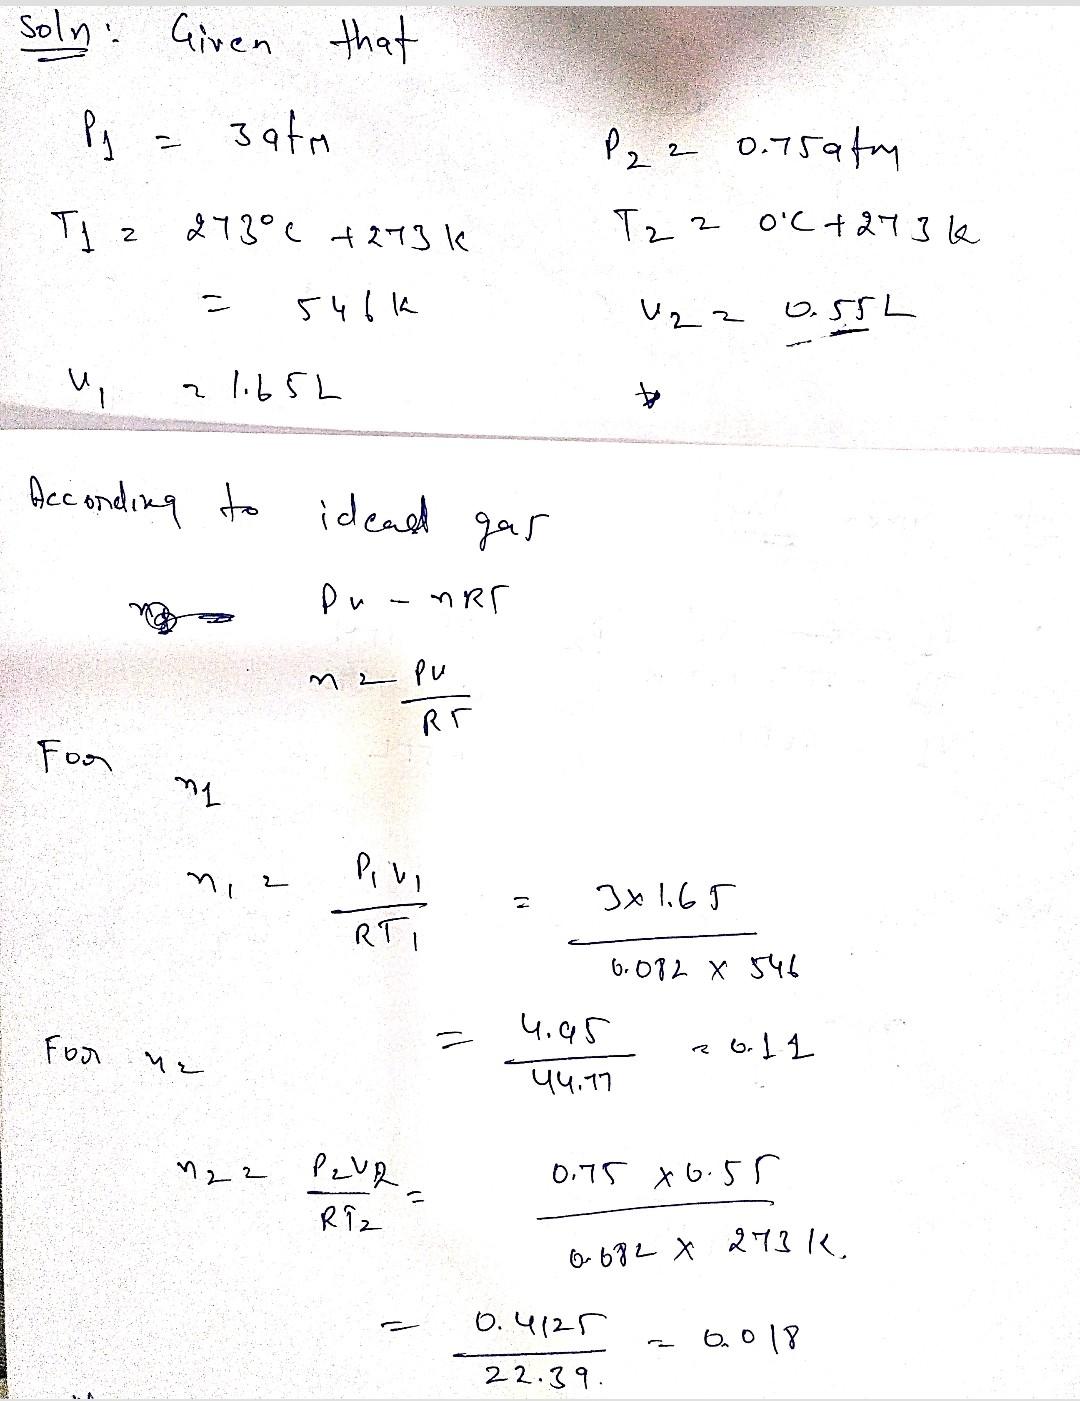 Soln: Given that
P1 = 3 atm P2 = 0.75 atm
T1 = 273°C + 273 k T2 = 0°C + 273 k
= 546 k V2 = 0.55 L
V1 = 1.65 L
According to ideal gas
PV = nRT
n = PV / RT
For n1
n1 = P1V1 / RT1 = 3 × 1.65 / 0.082 × 546
= 4.95 / 44.77 = 0.11
For n2
n2 = P2V2 / RT2 = 0.75 × 0.55 / 0.082 × 273 K.
= 0.4125 / 22.39. = 0.018